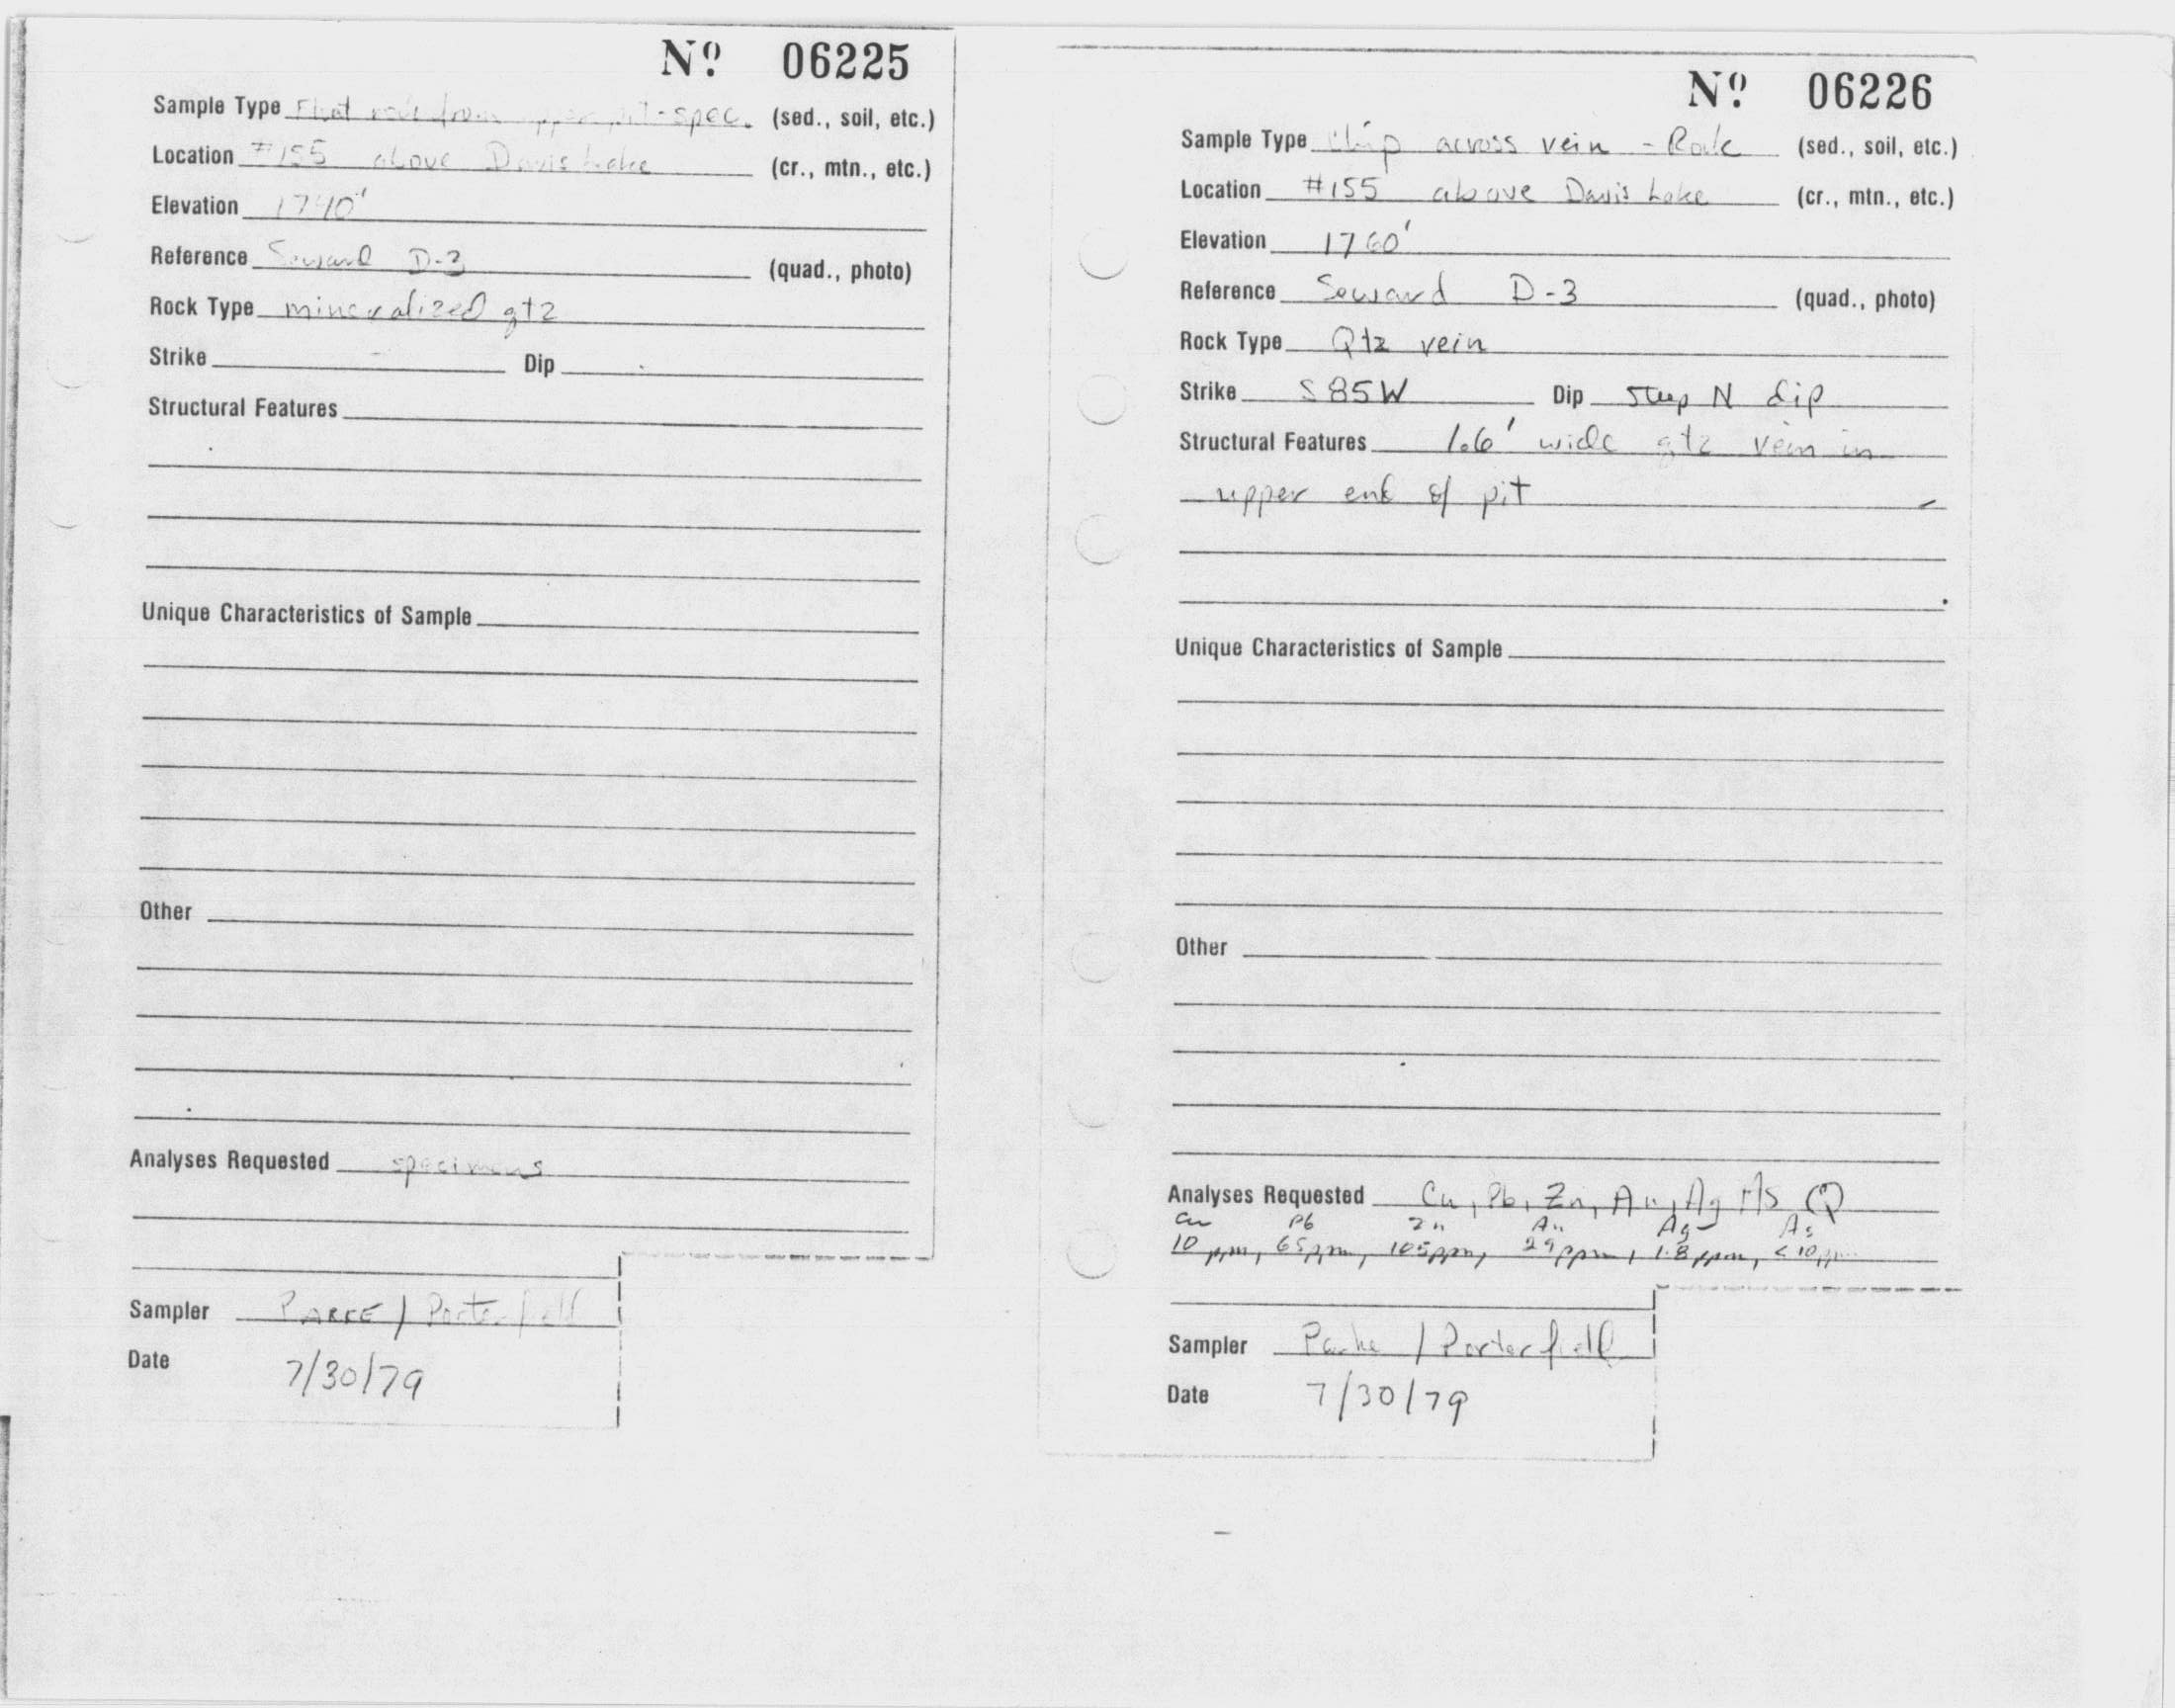 Nº 06225
Sample Type Float rock from upper pit - spec. (sed., soil, etc.)
Location #155 above Davis Lake (cr., mtn., etc.)
Elevation 1740'
Reference Seward D-3 (quad., photo)
Rock Type mineralized qtz
Strike Dip
Structural Features
Unique Characteristics of Sample
Other
Analyses Requested specimens
Sampler PARKE / Porterfield
Date 7/30/79
Nº 06226
Sample Type Chip across vein - Rock (sed., soil, etc.)
Location #155 above Davis Lake (cr., mtn., etc.)
Elevation 1760'
Reference Seward D-3 (quad., photo)
Rock Type Qtz vein
Strike S85W Dip steep N dip
Structural Features 1.6' wide qtz vein in
upper end of pit
Unique Characteristics of Sample
Other
Analyses Requested Cu, Pb, Zn, Au, Ag As
Cu Pb Zn Au Ag As
10 ppm, 65 ppm, 105 ppm, ppm, 1.8 ppm, <10 ppm
Sampler Parke / Porterfield
Date 7/30/79